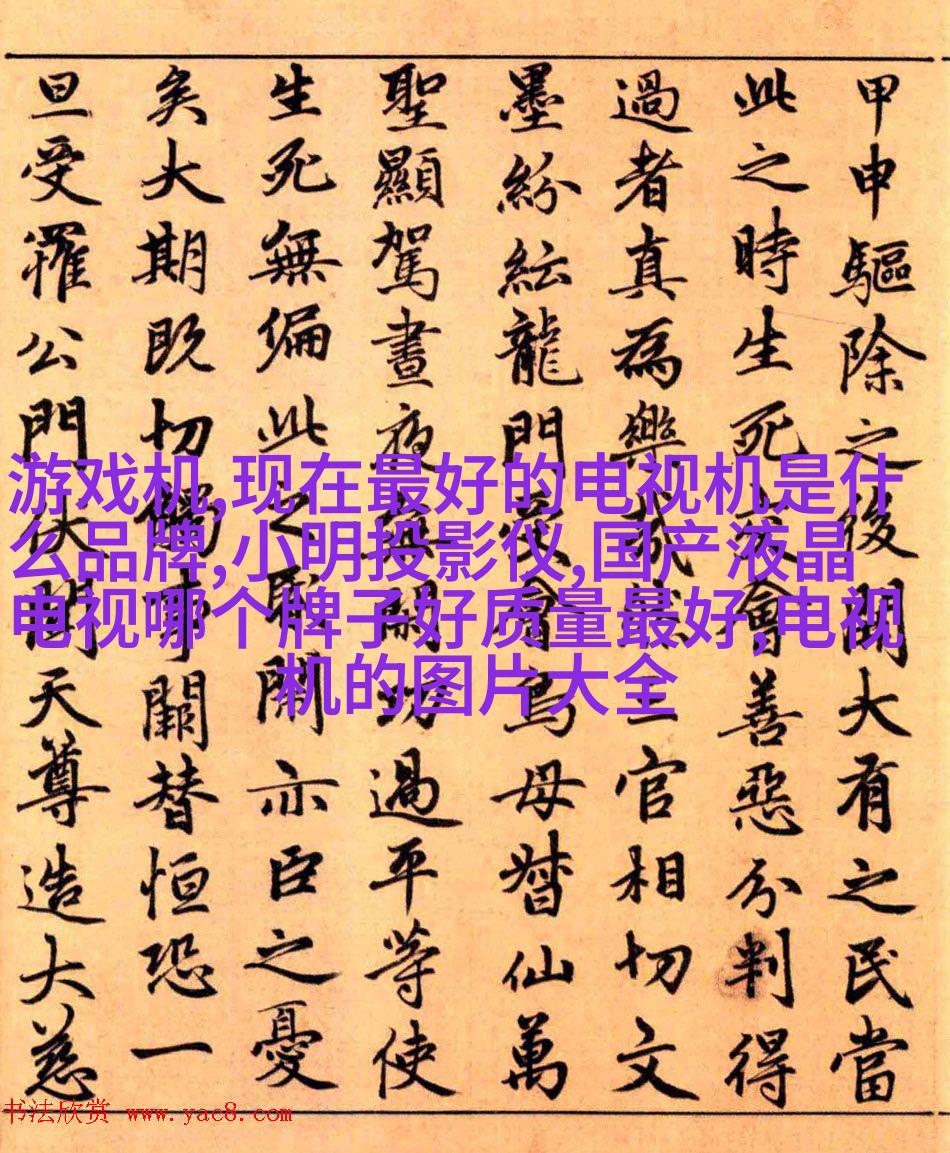 甲申驅除之後開大有之民當
此之時生死會善惡分判得
過者真為樂哉三官相切文
墨紛紜龍門會鳥母督仙萬
聖顯駕晝夜功過平等使
生死無偏此之開亦臣之憂
矣大期既切觸事闕替恒恐一
旦受罹公門伏聞天尊造大慈
游戏机,现在最好的电视机是什
么品牌,小明投影仪,国产液晶
电视哪个牌子好质量最好,电视
机的图片大全
书法欣赏 www.yac8.com